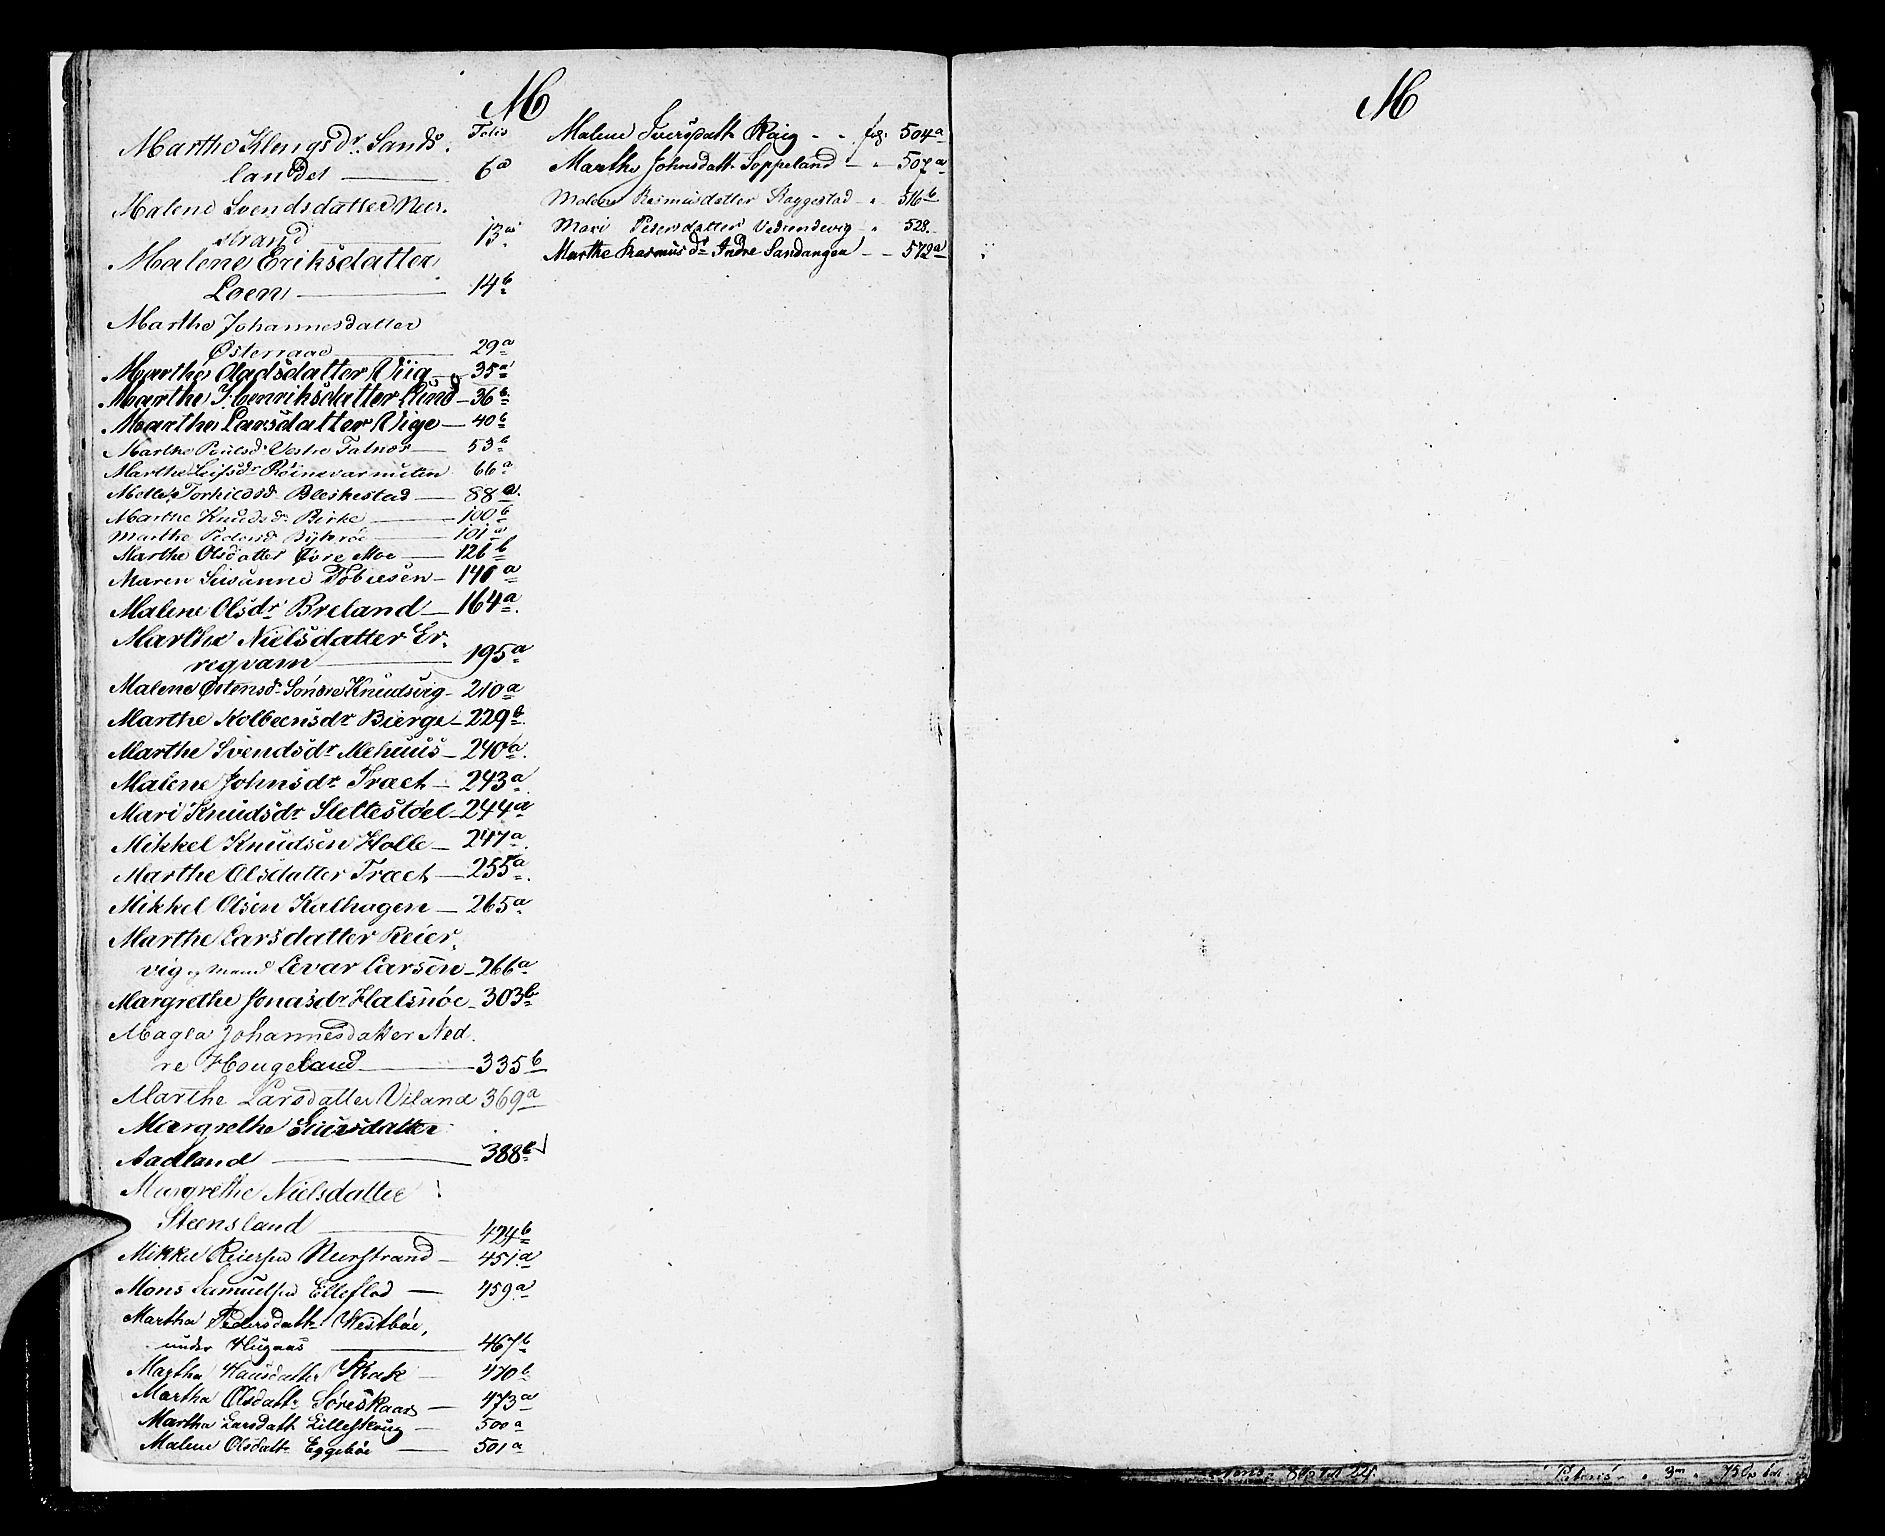 M
Folio
Marthe Klengsdr. Sands.
landet 6a
Malene Svendsdatter Ner.
strand 13a
Malene Eriksdatter
Loen 14b
Marthe Johannesdatter
Østeraae 29a
Marthe Oladsdatter Viig 35a
Marthe Henriksdatter Lund 36b
Marthe Larsdatter Vige 40b
Marthe Poulsdr Vestre Talnæs 53b
Marthe Leifsdr Røinevarmuten 66a
Mette Torkildsd. Bleskestad 88a
Marthe Knudsdr Birke 100b
Marthe Pedersd 101a
Marthe Olsdatter Øvre Moe 126b
Maren Susanne Tobiesen 140a
Malene Olsdr Breland 164a
Marthe Nielsdatter Er.
regvam 195a
Malene Østensdr Søndre Knudsvig 210a
Marthe Kolbeensdr Bierge 229b
Marthe Svendsdr Mehuus 240a
Malene Johnsdr Traet 243a
Mari Knudsdr Slettestøel 244a
Mikkel Knudsen Holle 247a
Marthe Olsdatter Traet 255a
Mikkel Olsen Kalhagen 265a
Marthe Larsdatter Reier.
vig og mand Levar Larsen 266a
Margrethe Jonasdr Halsnöe 303b
Magla Johannesdatter Ned.
re Hougeland 335b
Marthe Larsdatter Viland 369a
Margrethe Siursdatter
Aadland 388b
Margrethe Nielsdatter
Steensland 424b
Mikkel Reiersen Nerstrand 451a
Mons Samuelsen Elleflod 459a
Martha Pedersdattr Westbøe,
under Hugaas 467b
Martha Hansdatter Skak 470b
Martha Olsdattr Søreskaar 473a
Martha Larsdatt Lilleskoug 500a
Malene Olsdattr Eggebøe 501a
Malene Iversdatt Røig fog. 504a
Marthe Johnsdatt Soppeland 507a
Malene Rasmusdatter Raggestad 516b
Mari Pedersdatter Vedrendevig 528.
Marthe Rasmusdr Indre Sandangen 572a
M